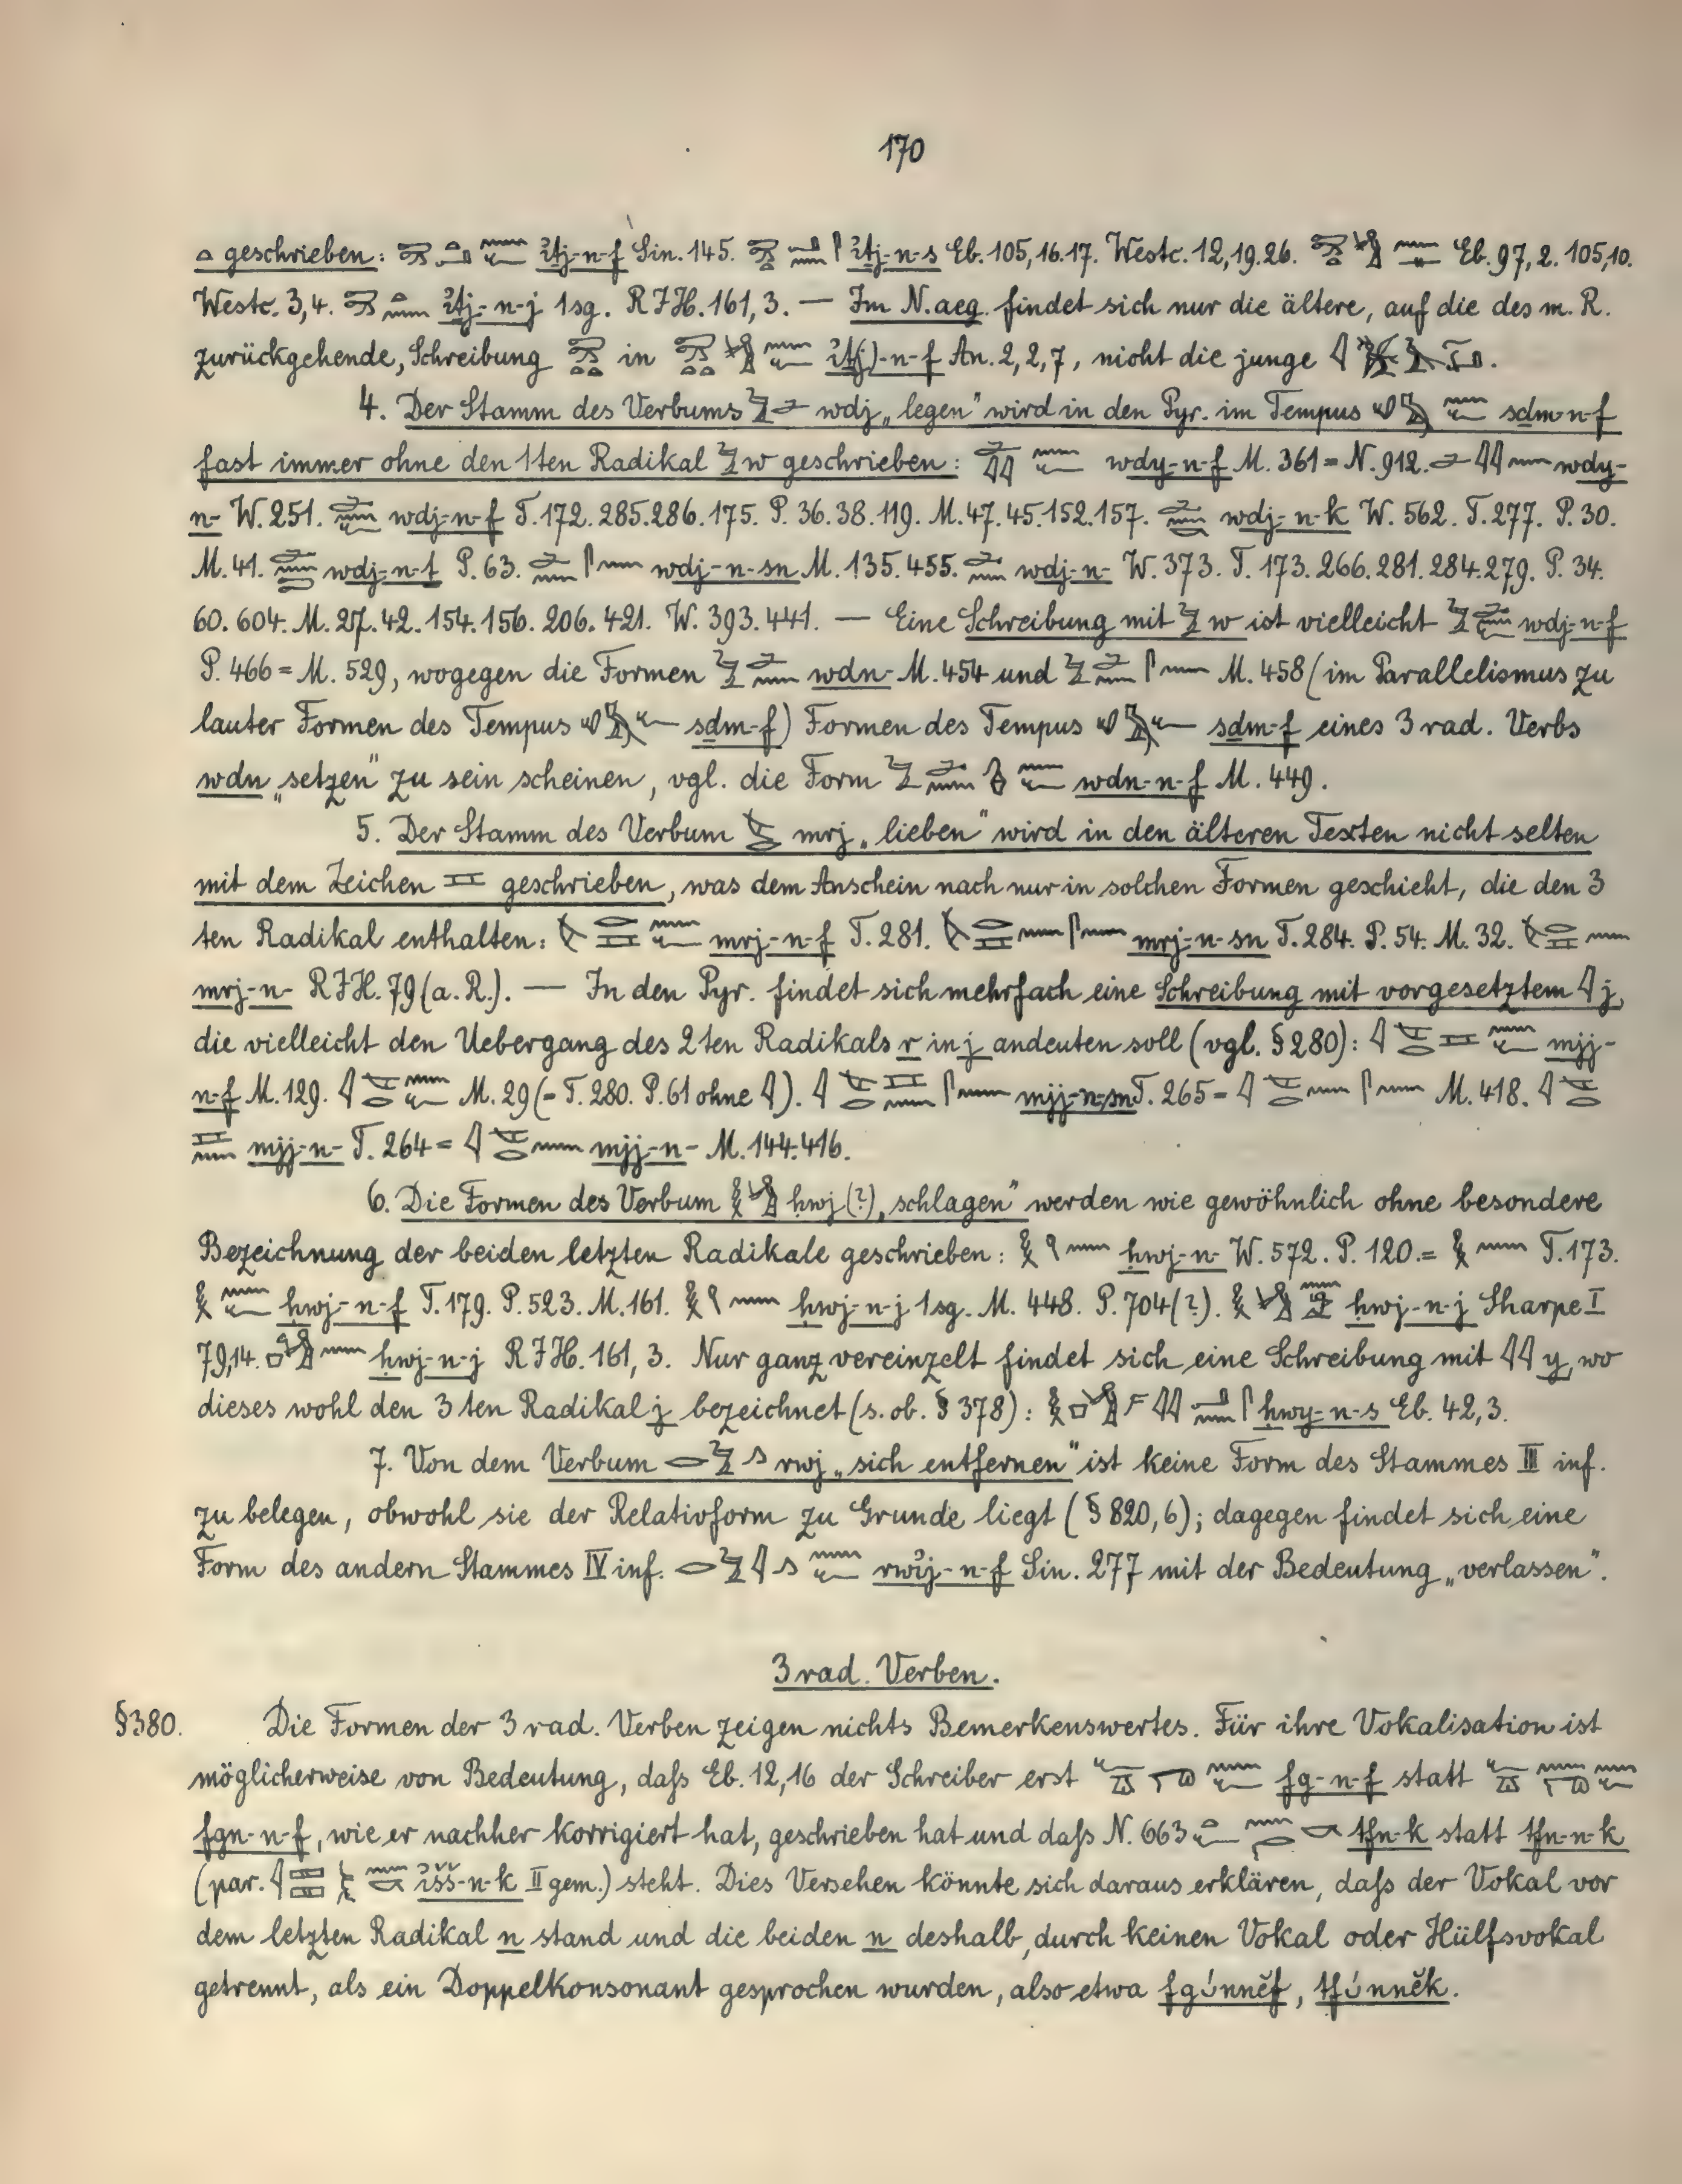 170
geschrieben: ı͗tj-n-f Sin. 145. ı͗tj-n-s Eb. 105,16.17. Westc. 12,19.26. Eb. 97,2. 105,10.
Westc. 3,4. ı͗tj-n-j 1sg. RIH. 161,3. — Im N.aeg. findet sich nur die ältere, auf die des m. R.
zurückgehende, Schreibung in ı͗t(j)-n-f An. 2,2,7, nicht die junge
4. Der Stamm des Verbums wdj „legen" wird in den Pyr. im Tempus sḏm-n-f
fast immer ohne den 1ten Radikal w geschrieben: wdy-n-f M. 361 = N. 912. wdy-
n- W. 251. wdj-n-f T. 172. 285. 286. 175. P. 36. 38. 119. M. 47. 45. 152. 157. wdj-n-k W. 562. T. 277. P. 30.
M. 41. wdj-n-ṯ P. 63. wdj-n-sn M. 135. 455. wdj-n- W. 373. T. 173. 266. 281. 284. 279. P. 34.
60. 604. M. 27. 42. 154. 156. 206. 421. W. 393. 441. — Eine Schreibung mit w ist vielleicht wdj-n-f
P. 466 = M. 529, wogegen die Formen wdn- M. 454 und M. 458 (im Parallelismus zu
lauter Formen des Tempus sḏm-f) Formen des Tempus sḏm-f eines 3 rad. Verbs
wdn „setzen" zu sein scheinen, vgl. die Form wdn-n-f M. 449.
5. Der Stamm des Verbum mrj „lieben" wird in den älteren Texten nicht selten
mit dem Zeichen geschrieben, was dem Anschein nach nur in solchen Formen geschieht, die den 3
ten Radikal enthalten: mrj-n-f T. 281. mrj-n-sn T. 284. P. 54. M. 32.
mrj-n- RIH. 79 (a. R.). — In den Pyr. findet sich mehrfach eine Schreibung mit vorgesetztem j,
die vielleicht den Uebergang des 2ten Radikals r in j andeuten soll (vgl. § 280): mjj-
n-f M. 129. M. 29 (= T. 280. P. 61 ohne ). mjj-n-sn T. 265 = M. 418.
mjj-n- T. 264 = mjj-n- M. 144. 416.
6. Die Formen des Verbum ḥwj (?) „schlagen" werden wie gewöhnlich ohne besondere
Bezeichnung der beiden letzten Radikale geschrieben: ḥwj-n- W. 572. P. 120. = T. 173.
ḥwj-n-f T. 179. P. 523. M. 161. ḥwj-n-j 1sg. M. 448. P. 704 (?). ḥwj-n-j Sharpe I
79,14. ḥwj-n-j RIH. 161,3. Nur ganz vereinzelt findet sich eine Schreibung mit y, wo
dieses wohl den 3ten Radikal j bezeichnet (s. ob. § 378): ḥwy-n-s Eb. 42,3.
7. Von dem Verbum rwj „sich entfernen" ist keine Form des Stammes III inf.
zu belegen, obwohl sie der Relativform zu Grunde liegt (§ 820,6); dagegen findet sich eine
Form des andern Stammes IV inf. rwı͗j-n-f Sin. 277 mit der Bedeutung „verlassen".
3 rad. Verben.
§ 380. Die Formen der 3 rad. Verben zeigen nichts Bemerkenswertes. Für ihre Vokalisation ist
möglicherweise von Bedeutung, daſs Eb. 12,16 der Schreiber erst fg-n-f statt
fgn-n-f, wie er nachher korrigiert hat, geschrieben hat und daſs N. 663 tfn-k statt tfn-n-k
(par. ı͗šš-n-k II gem.) steht. Dies Versehen könnte sich daraus erklären, daſs der Vokal vor
dem letzten Radikal n stand und die beiden n deshalb, durch keinen Vokal oder Hülfsvokal
getrennt, als ein Doppelkonsonant gesprochen wurden, also etwa